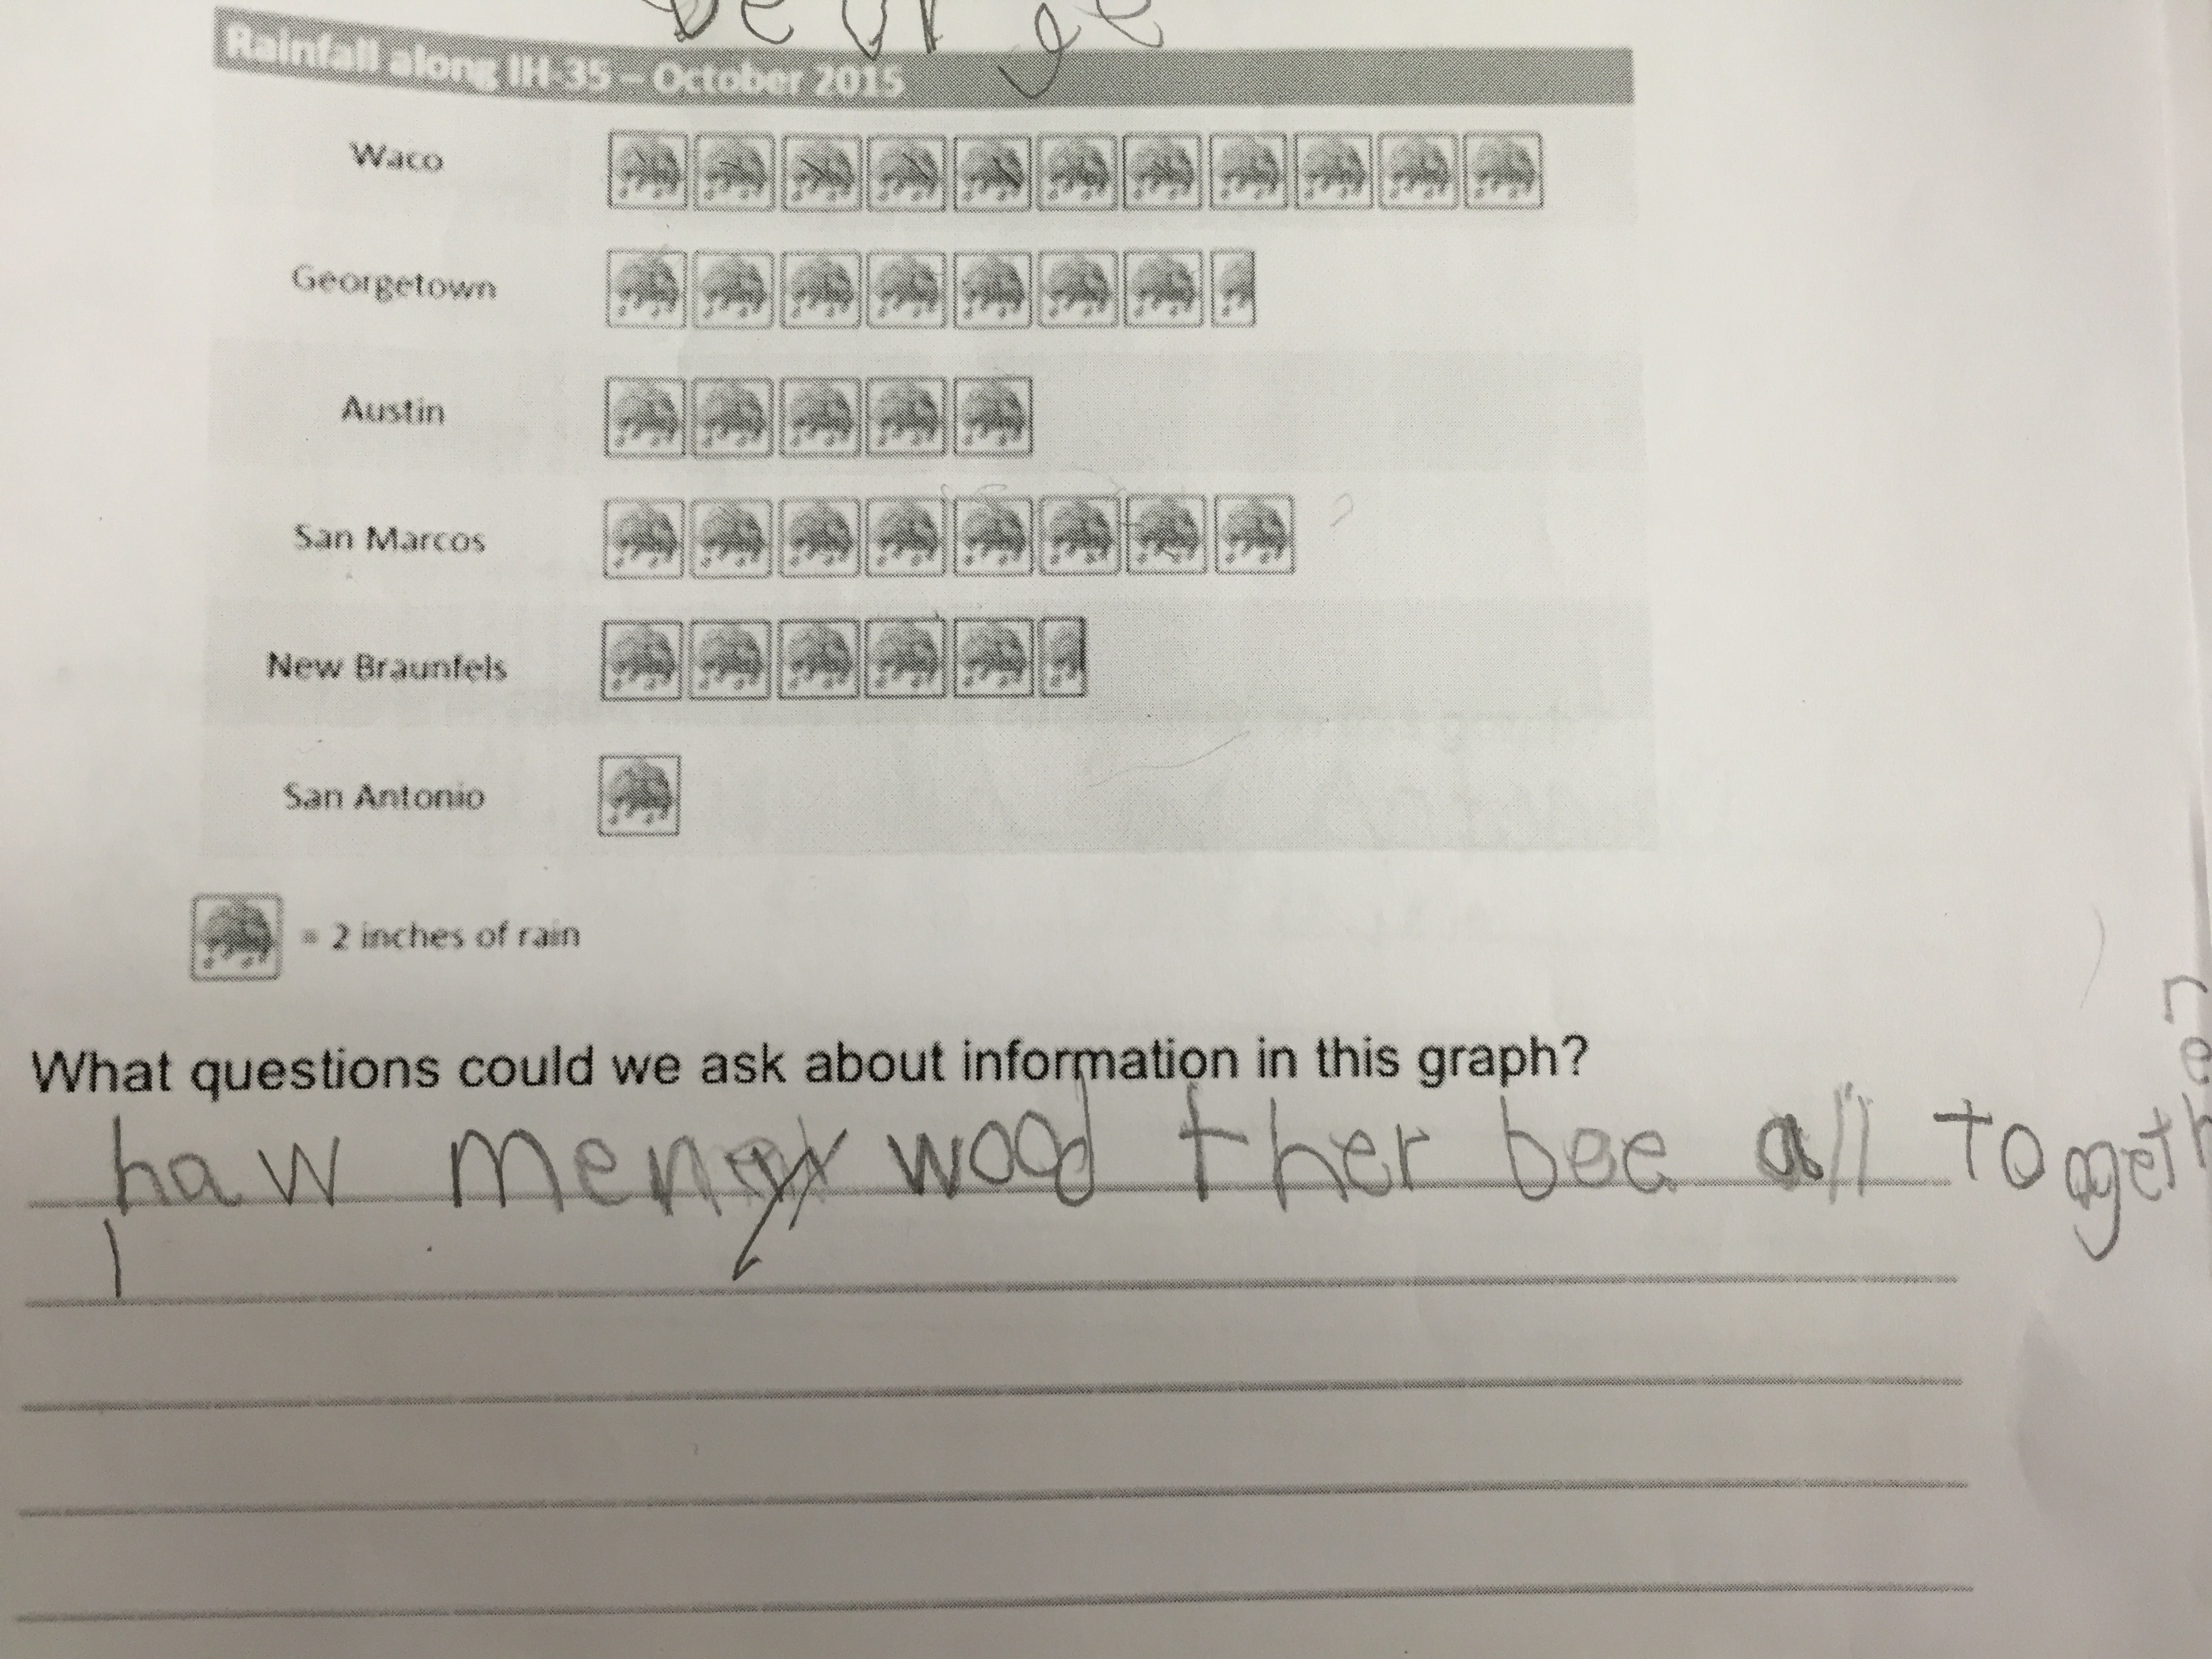 Rainfall along IH-35 – October 2015
Waco
Georgetown
Austin
San Marcos
New Braunfels
San Antonio
= 2 inches of rain
What questions could we ask about information in this graph?
haw meny wood ther bee all together